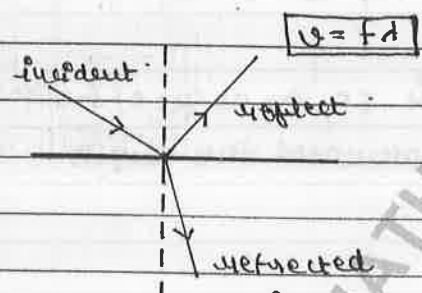 v = fλ
incident
reflect
refrected
MATH